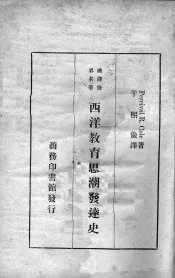 Percival R. Cole 著
于熙儉譯
漢譯世
界名著
西洋教育思潮發達史
商務印書館發行